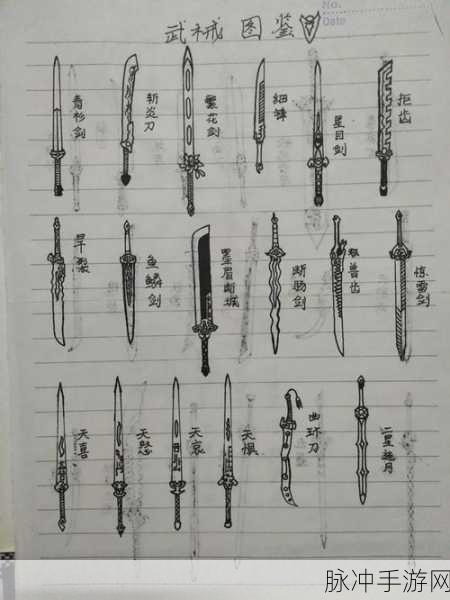 武械图鉴
No.
Date
青杉剑
斩炎刀
雲花剑
细锋
星目剑
拒齿
旱裂
鱼鳞剑
星眉断城
断肠剑
兽齿
惊雷剑
天喜
天怒
天哀
天惧
曲环刀
二星追月
脉冲手游网